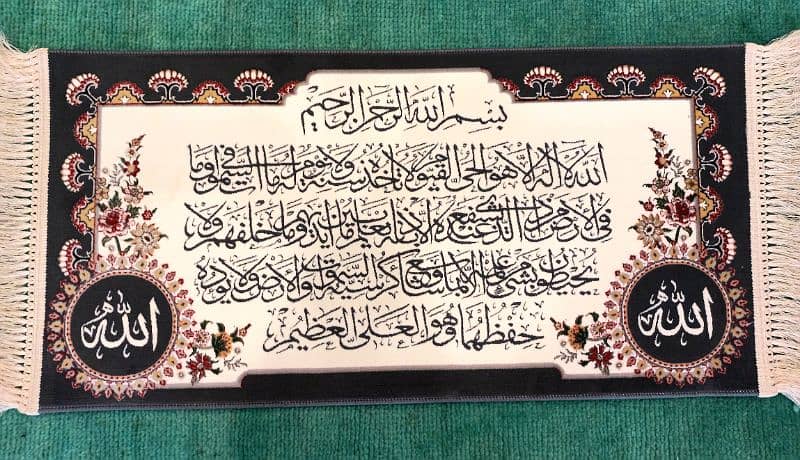 بسم الله الرحمن الرحيم
الله لا إله إلا هو الحي القيوم لا تأخذه سنة ولا نوم له ما في السموات وما
في الأرض من ذا الذي يشفع عنده إلا بإذنه يعلم ما بين أيديهم وما خلفهم ولا
يحيطون بشيء من علمه إلا بما شاء وسع كرسيه السموات والأرض ولا يؤده
حفظهما وهو العلي العظيم
الله
الله